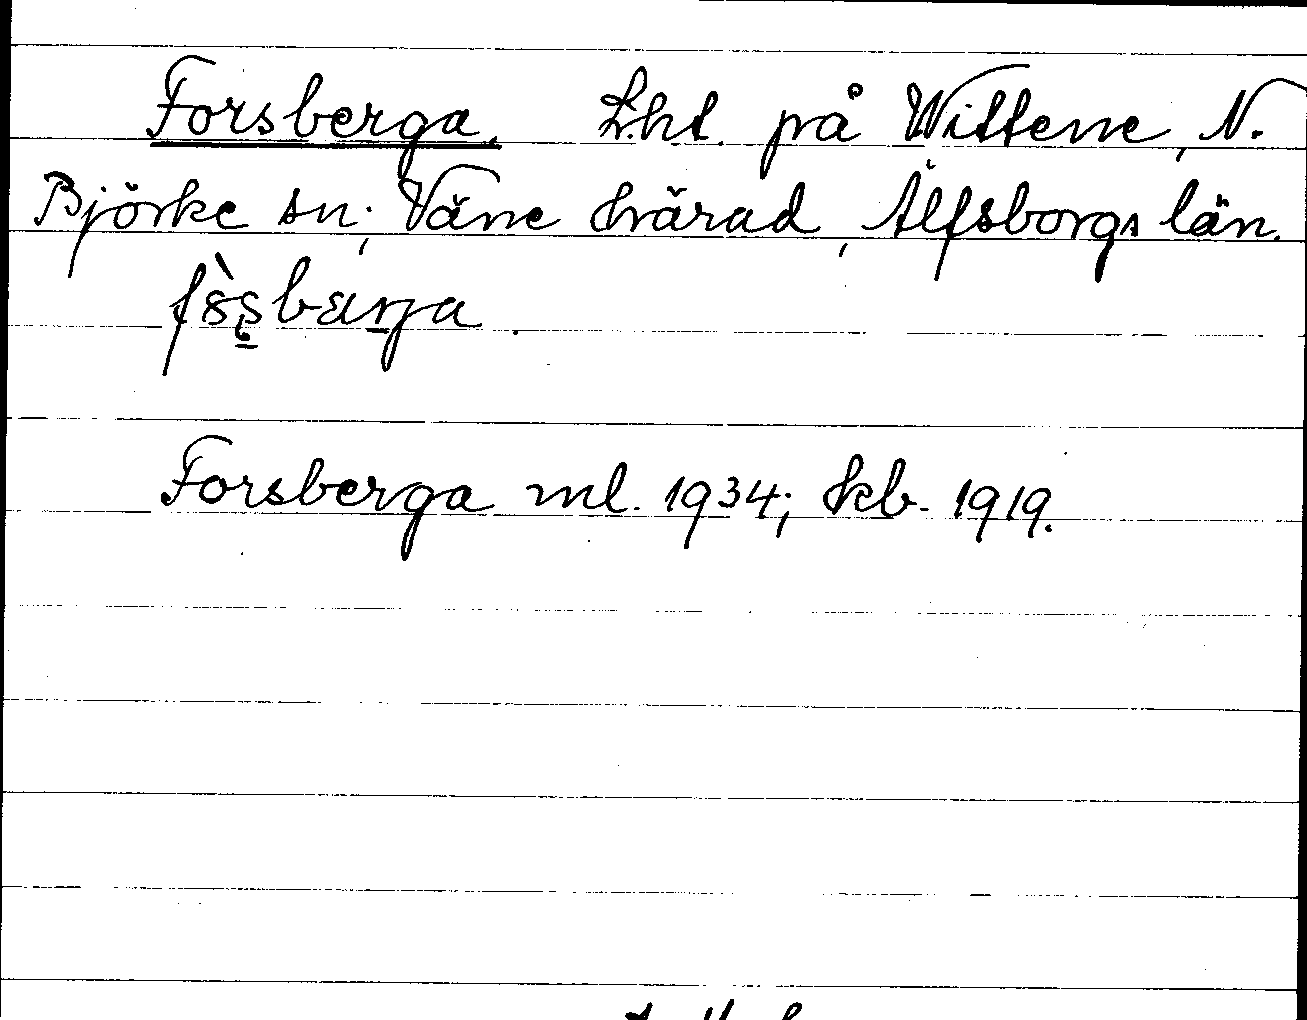 Forsberga. Lht. på Wittene, N.
Björke sn; Väne härad, Älfsborgs län.
Forsberga ml. 1934; kb. 1919.